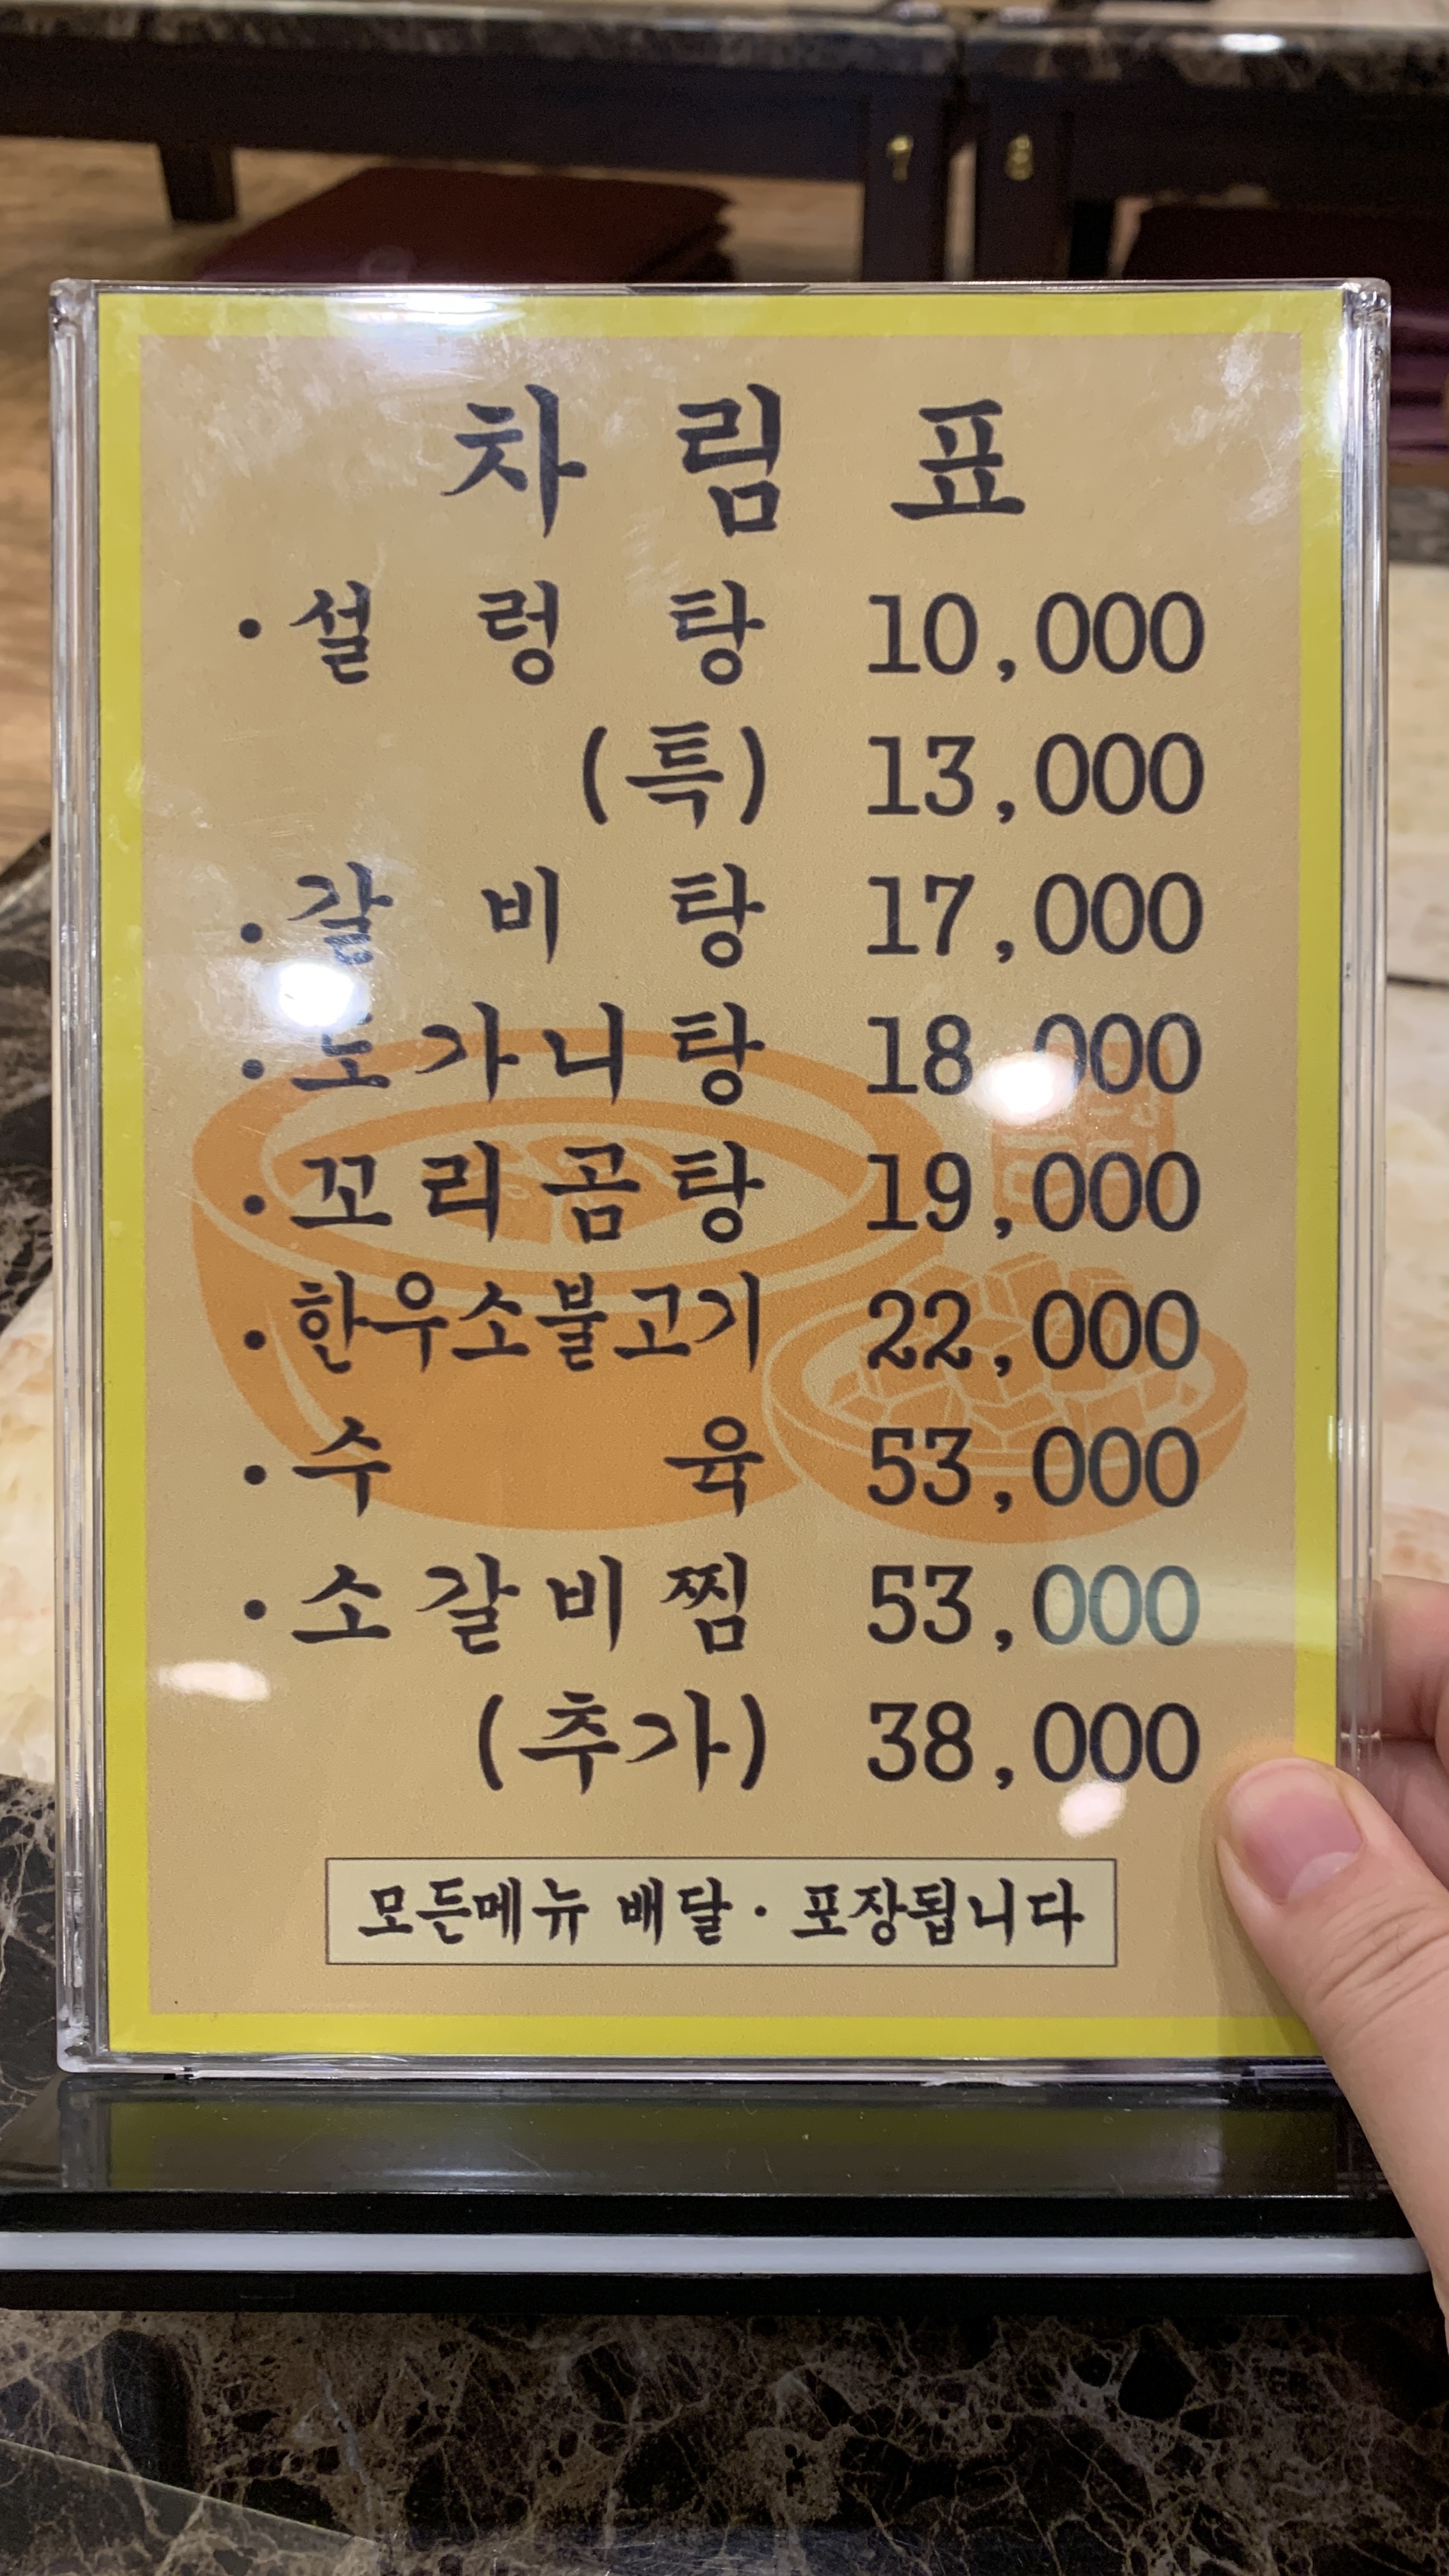 차 림 표
·설 렁 탕 10,000
(특) 13,000
·갈 비 탕 17,000
·도가니탕 18,000
·꼬리곰탕 19,000
·한우소불고기 22,000
·수 육 53,000
·소갈비찜 53,000
(추가) 38,000
모든메뉴 배달·포장됩니다
7
8